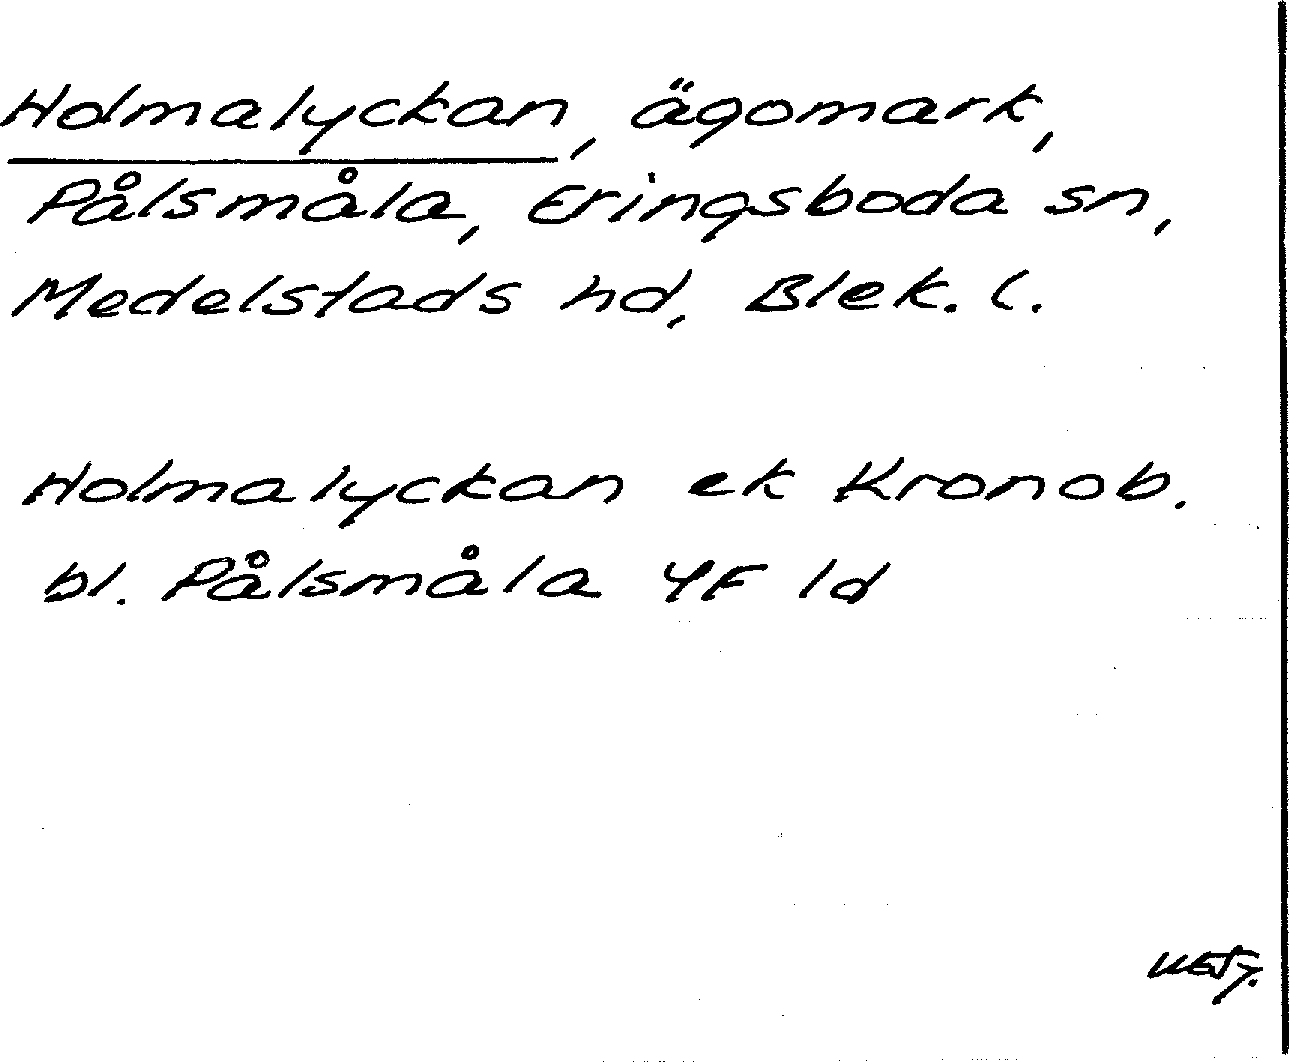 Holmalyckan, ägomark,
Pålsmåla, Eringsboda sn,
Medelstads hd, Blek. l.
Holmalyckan ek Kronob.
bl. Pålsmåla 4F 1d